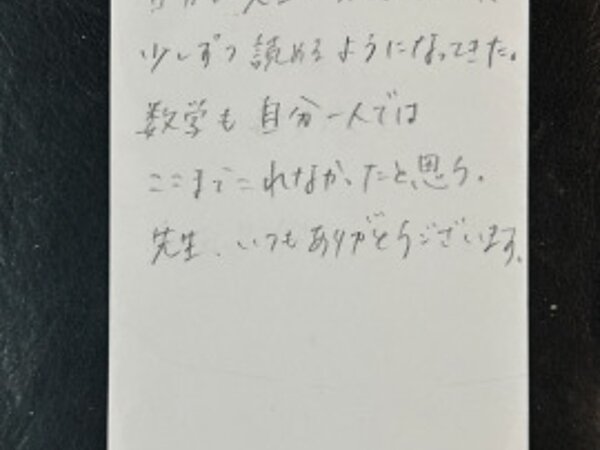 少しずつ読めるようになってきた。
数学も自分一人では
ここまでこれなかったと思う。
先生、いつもありがとうございます。